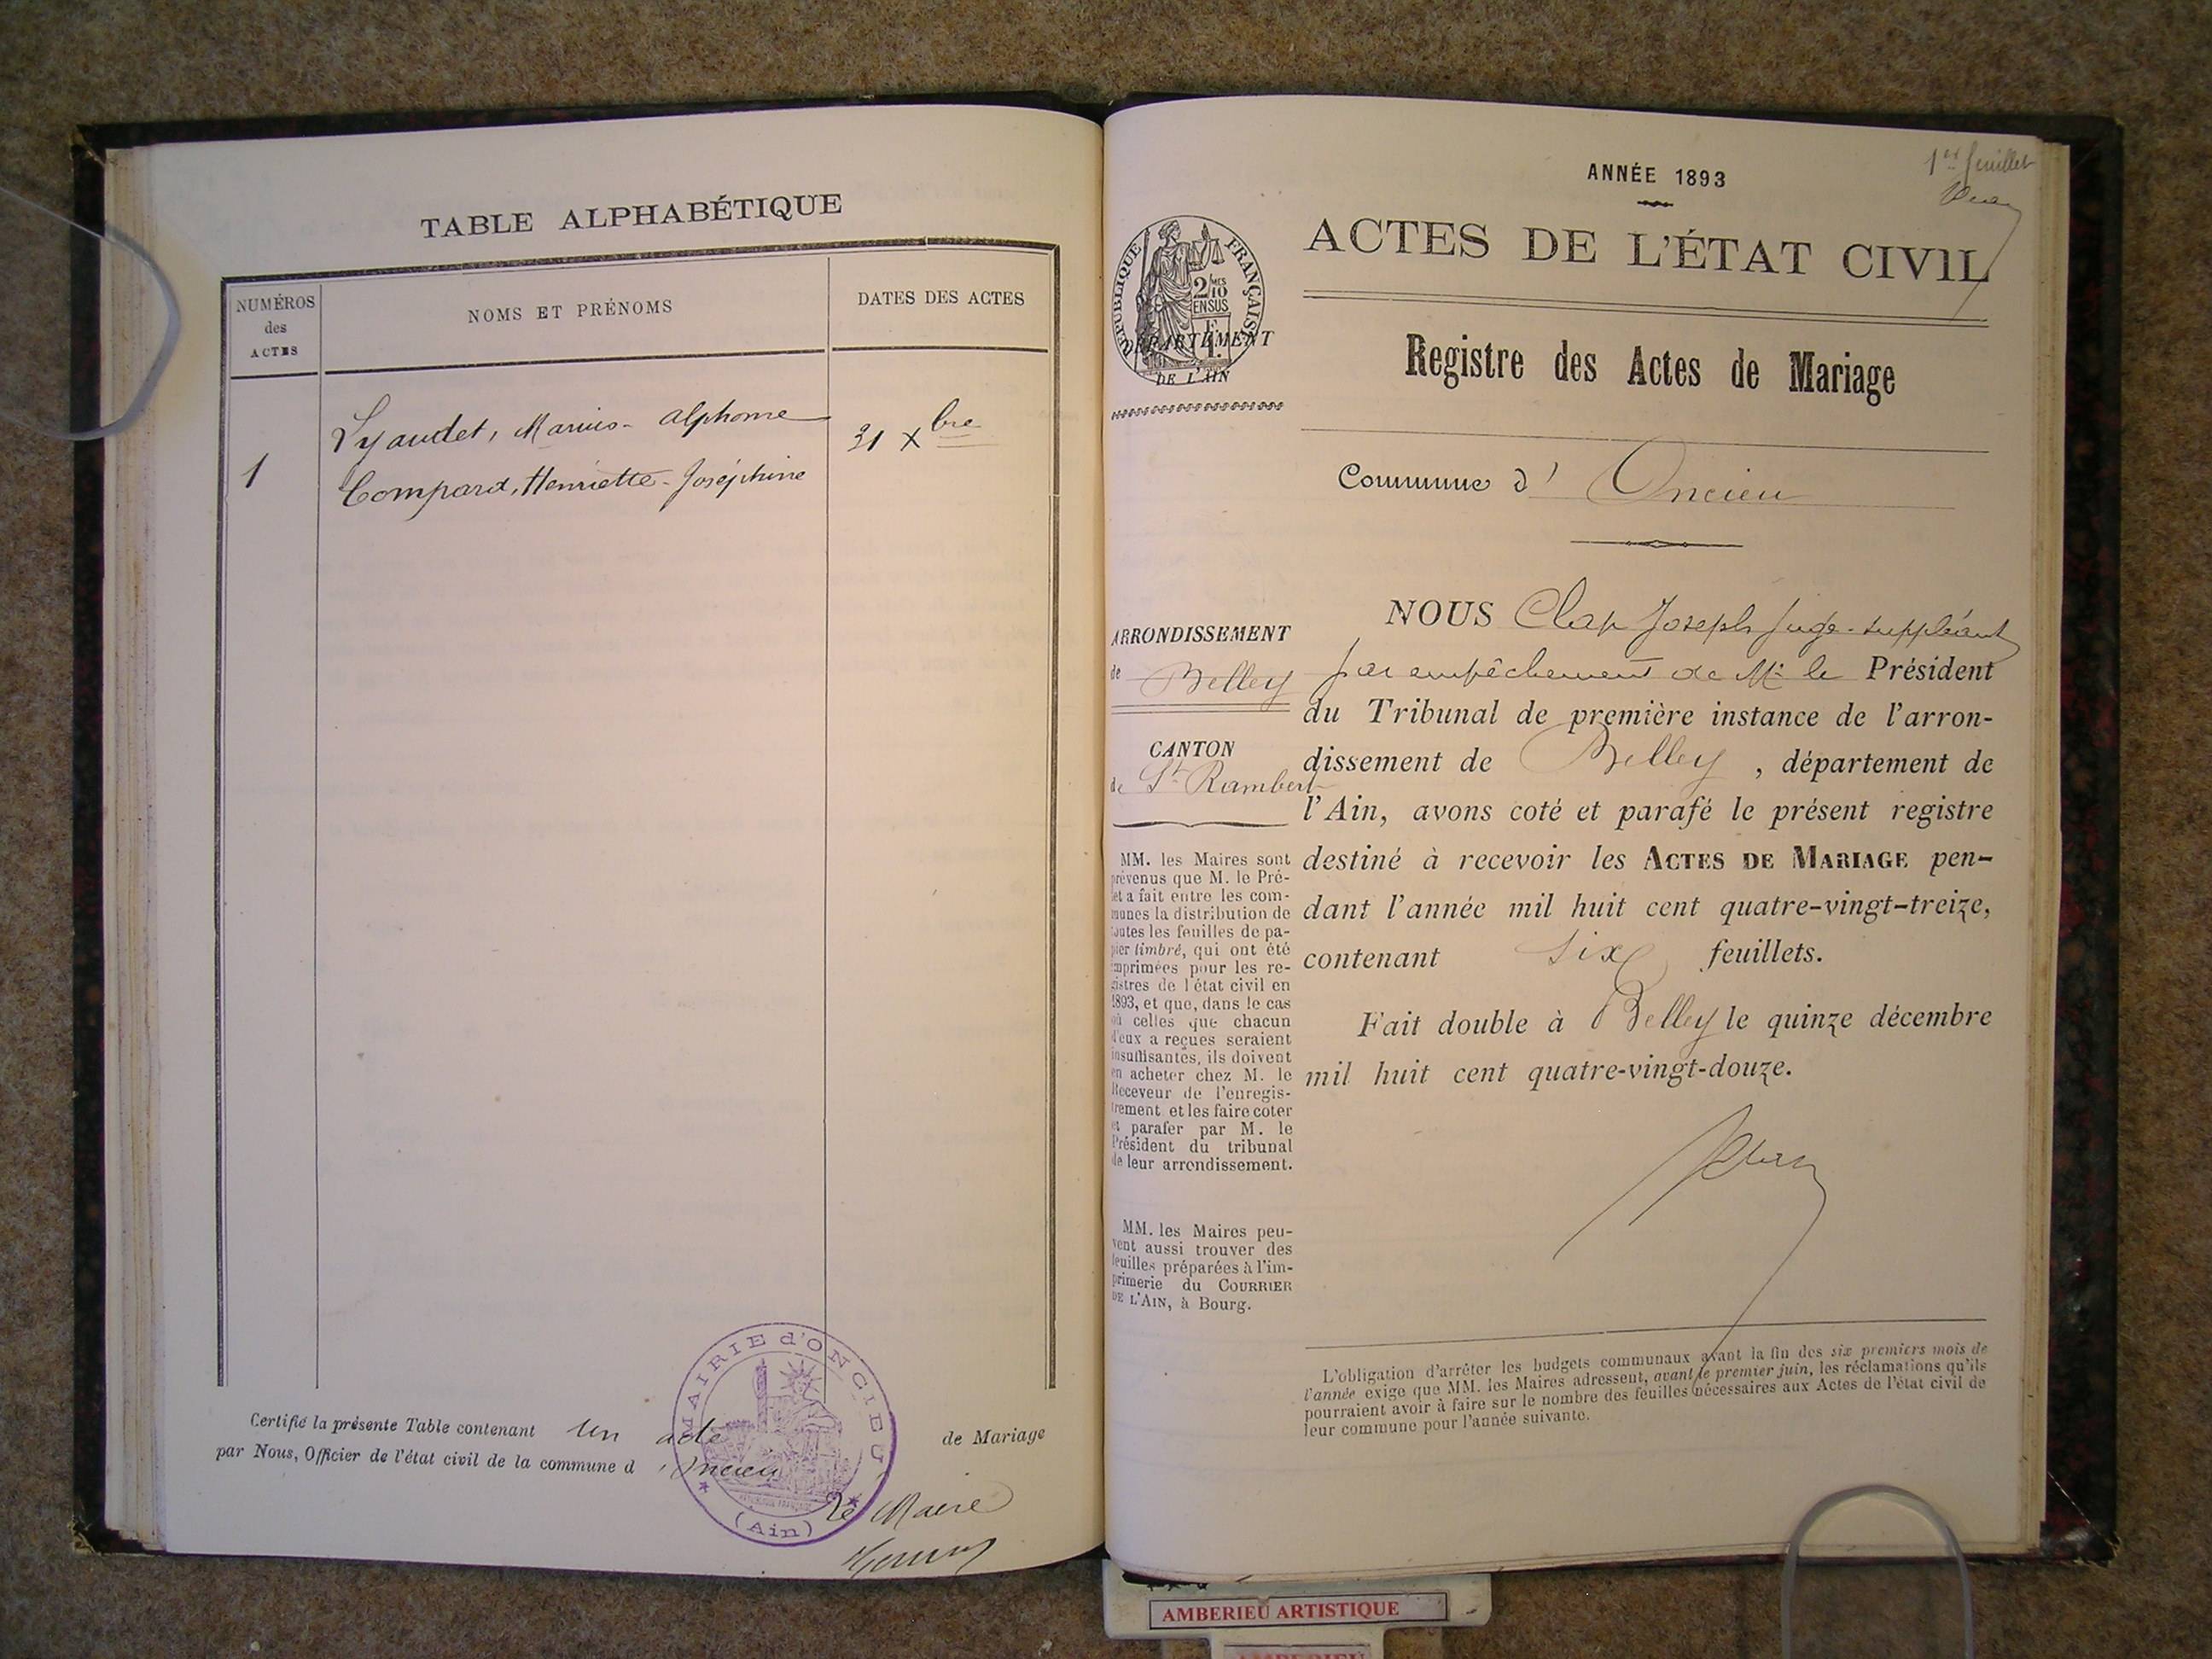 TABLE ALPHABÉTIQUE
NUMÉROS
des
ACTES
NOMS ET PRÉNOMS
DATES DES ACTES
Lyaudet, Marius-alphonse
31 Xbre
1
Compard, Henriette-Joséphine
Certifié la présente Table contenant un acte de Mariage
par Nous, Officier de l'état civil de la commune d'Oncieu
MAIRIE d'ONCIEU
(Ain)
Le Maire
1er feuillet
ANNÉE 1893
ACTES DE L'ÉTAT CIVIL
RÉPUBLIQUE FRANÇAISE
2/10 MES
EN SUS
DÉPARTEMENT
DE L'AIN
Registre des Actes de Mariage
Commune d' Oncieu
ARRONDISSEMENT
de Belley
CANTON
de St Rambert
MM. les Maires sont
prévenus que M. le Pré-
fet a fait entre les com-
munes la distribution de
toutes les feuilles de pa-
pier timbré, qui ont été
imprimées pour les re-
gistres de l'état civil en
1893, et que, dans le cas
où celles que chacun
d'eux a reçues seraient
insuffisantes, ils doivent
en acheter chez M. le
Receveur de l'enregis-
trement et les faire coter
et parafer par M. le
Président du tribunal
de leur arrondissement.
MM. les Maires peu-
vent aussi trouver des
feuilles préparées à l'im-
primerie du COURRIER
DE L'AIN, à Bourg.
NOUS Clap Joseph Juge-suppléant
par empêchement de Mr le Président
du Tribunal de première instance de l'arron-
dissement de Belley, département de
l'Ain, avons coté et parafé le présent registre
destiné à recevoir les ACTES DE MARIAGE pen-
dant l'année mil huit cent quatre-vingt-treize,
contenant six feuillets.
Fait double à Belley le quinze décembre
mil huit cent quatre-vingt-douze.
L'obligation d'arrêter les budgets communaux avant la fin des six premiers mois de
l'année exige que MM. les Maires adressent, avant le premier juin, les réclamations qu'ils
pourraient avoir à faire sur le nombre des feuilles nécessaires aux Actes de l'état civil de
leur commune pour l'année suivante.
AMBERIEU ARTISTIQUE
AMBERIEU